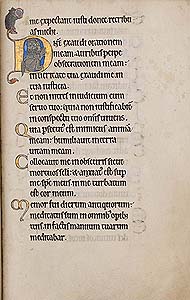 me expectant iusti donec retribu
as michi.
Dñe exaudi orationem
meam: auribus percipe
obsecrationem meam:
in ueritate tua exaudi me in
tua iusticia.
Et non intres in iudicium cum
seruo tuo: quia non iustificabit̃
in conspectu tuo omnis uiuens.
Quia psecutus est inimicus animã
meam: humiliauit in terra
uitam meam.
Collocauit me in obscuris sicut
mortuos scłi: et anxiatus est sup
me sp̃c meus in me turbatum
est cor meum.
Memor fui dierum antiquorum:
meditatus sum in omnibꝫ opibꝫ
tuis in factis manuum tuarum
meditabar.